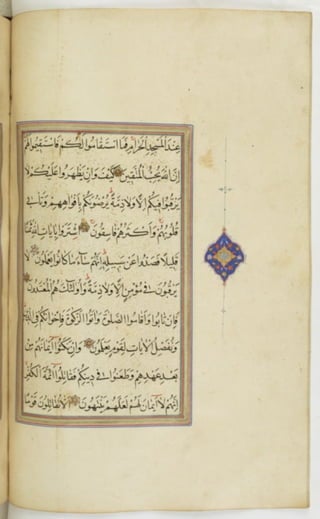 عِندَ الْمَسْجِدِ الْحَرَامِ فَمَا اسْتَقَامُوا لَكُمْ فَاسْتَقِيمُوا لَهُمْ
اِنَّ اللّٰهَ يُحِبُّ الْمُتَّقِينَ كَيْفَ وَاِنْ يَظْهَرُوا عَلَيْكُمْ لَا
يَرْقُبُوا فِيكُمْ اِلًّا وَلَا ذِمَّةً يُرْضُونَكُمْ بِاَفْوَاهِهِمْ وَتَاْبٰى
قُلُوبُهُمْ وَاَكْثَرُهُمْ فَاسِقُونَ اِشْتَرَوْا بِاٰيَاتِ اللّٰهِ ثَمَنًا
قَلِيلًا فَصَدُّوا عَنْ سَبِيلِهِ اِنَّهُمْ سَاءَ مَا كَانُوا يَعْمَلُونَ لَا
يَرْقُبُونَ فِي مُؤْمِنٍ اِلًّا وَلَا ذِمَّةً وَاُولٰئِكَ هُمُ الْمُعْتَدُونَ
فَاِنْ تَابُوا وَاَقَامُوا الصَّلٰوةَ وَاٰتَوُا الزَّكٰوةَ فَاِخْوَانُكُمْ فِي الدِّينِ
وَنُفَصِّلُ الْاٰيَاتِ لِقَوْمٍ يَعْلَمُونَ وَاِنْ نَكَثُوا اَيْمَانَهُمْ مِنْ
بَعْدِ عَهْدِهِمْ وَطَعَنُوا فِي دِينِكُمْ فَقَاتِلُوا اَئِمَّةَ الْكُفْرِ
اِنَّهُمْ لَا اَيْمَانَ لَهُمْ لَعَلَّهُمْ يَنْتَهُونَ اَلَا تُقَاتِلُونَ قَوْمًا